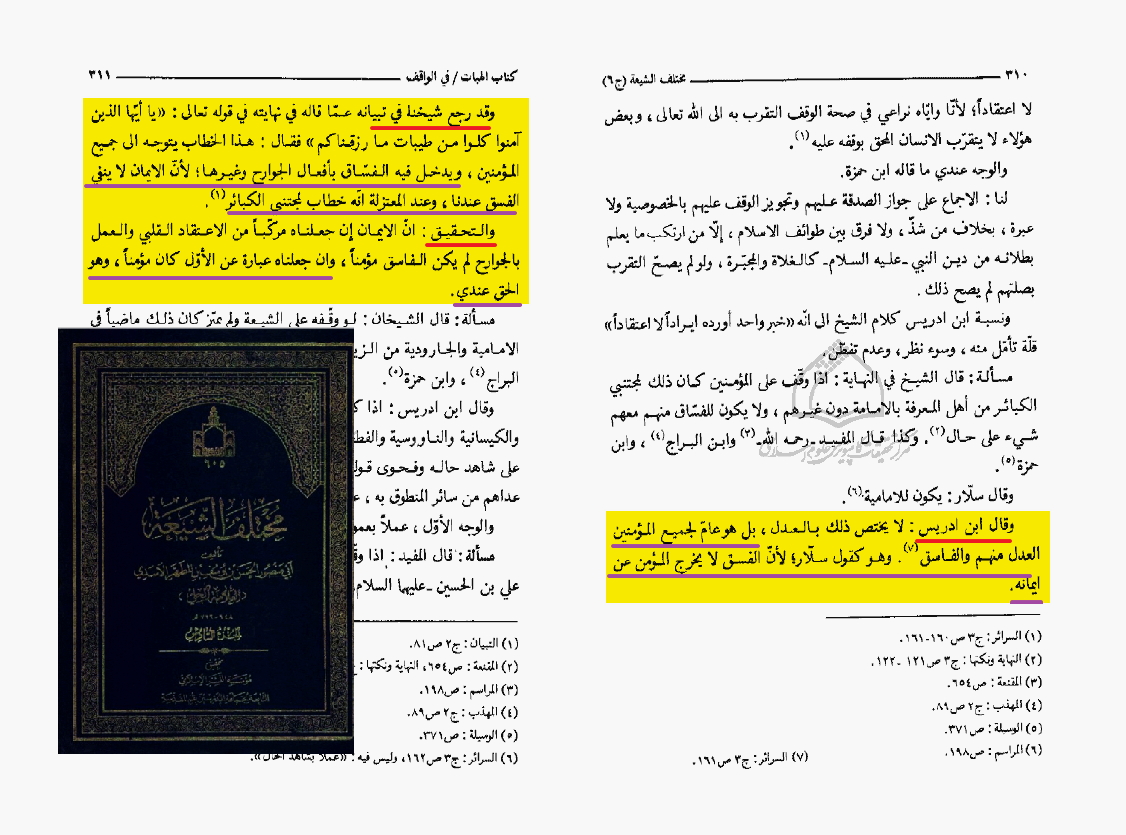 ٣١٠ مختلف الشيعة (ج٦)
لا اعتقاداً؛ لأنّا وايّاه نراعي في صحة الوقف التقرب به الى الله تعالى، وبعض
هؤلاء لا يتقرّب الانسان المحق بوقفه عليه (١).
والوجه عندي ما قاله ابن حمزة.
لنا: الاجماع على جواز الصدقة عليهم وتجويز الوقف عليهم بالخصوصية ولا
عبرة، بخلاف من شذّ، ولا فرق بين طوائف الاسلام، إلّا من ارتكب ما يعلم
بطلانه من دين النبي -عليه السلام- كالغلاة والمجبّرة، ولو لم يصحّ التقرب
بصلتهم لم يصح ذلك.
ونسبة ابن ادريس كلام الشيخ الى انّه «خبر واحد أورده ايراداً لا اعتقاداً»
قلّة تأمّل منه، وسوء نظر، وعدم تفطّن.
مسألة: قال الشيخ في النهاية: اذا وقّف على المؤمنين كان ذلك لمجتنبي
الكبائر من أهل المعرفة بالامامة دون غيرهم، ولا يكون للفسّاق منهم معهم
شيء على حال (٢). وكذا قال المفيد -رحمه الله- (٣) وابن البراج (٤)، وابن
حمزة (٥).
وقال سلّار: يكون للامامية (٦).
وقال ابن ادريس: لا يختص ذلك بالعدل، بل هو عامّ لجميع المؤمنين
العدل منهم والفاسق (٧). وهو كقول سلّار؛ لأنّ الفسق لا يخرج المؤمن عن
ايمانه.
(١) السرائر: ج٣ ص١٦٠-١٦١.
(٢) النهاية ونكتها: ج٣ ص١٢١-١٢٢.
(٣) المقنعة: ص٦٥٤.
(٤) المهذب: ج٢ ص٨٩.
(٥) الوسيلة: ص٣٧١.
(٦) المراسم: ص١٩٨.
(٧) السرائر: ج٣ ص١٦١.
كتاب الهبات / في الواقف ٣١١
وقد رجع شيخنا في تبيانه عمّا قاله في نهايته في قوله تعالى: «يا أيّها الذين
آمنوا كلوا من طيبات ما رزقناكم» فقال: هذا الخطاب يتوجه الى جميع
المؤمنين، ويدخل فيه الفسّاق بأفعال الجوارح وغيرها؛ لأنّ الايمان لا ينفي
الفسق عندنا، وعند المعتزلة انّه خطاب لمجتنبي الكبائر (١).
والتحقيق: انّ الايمان إن جعلناه مركّباً من الاعتقاد القلبي والعمل
بالجوارح لم يكن الفاسق مؤمناً، وان جعلناه عبارة عن الأوّل كان مؤمناً، وهو
الحق عندي.
مسألة: قال الشيخان: لو وقّفه على الشيعة ولم يميّز كان ذلك ماضياً في
الامامية والجارودية من
البراج (٤)، وابن حمزة (٥).
وقال ابن ادريس: اذا
والكيسانية والناووسية
على شاهد حاله وفحوى
عداهم من سائر المنطوق به،
والوجه الأوّل، عملاً
مسألة: قال المفيد: اذا
علي بن الحسين -عليهما السلام
(١) التبيان: ج٢ ص٨١.
(٢) المقنعة: ص٦٥٤، النهاية ونكتها:
(٣) المراسم: ص١٩٨.
(٤) المهذب: ج٢ ص٨٩.
(٥) الوسيلة: ص٣٧١.
(٦) السرائر: ج٣ ص١٦٢، وليس فيه: «عملاً بشاهد الحال».
مختلف الشيعة
تأليف